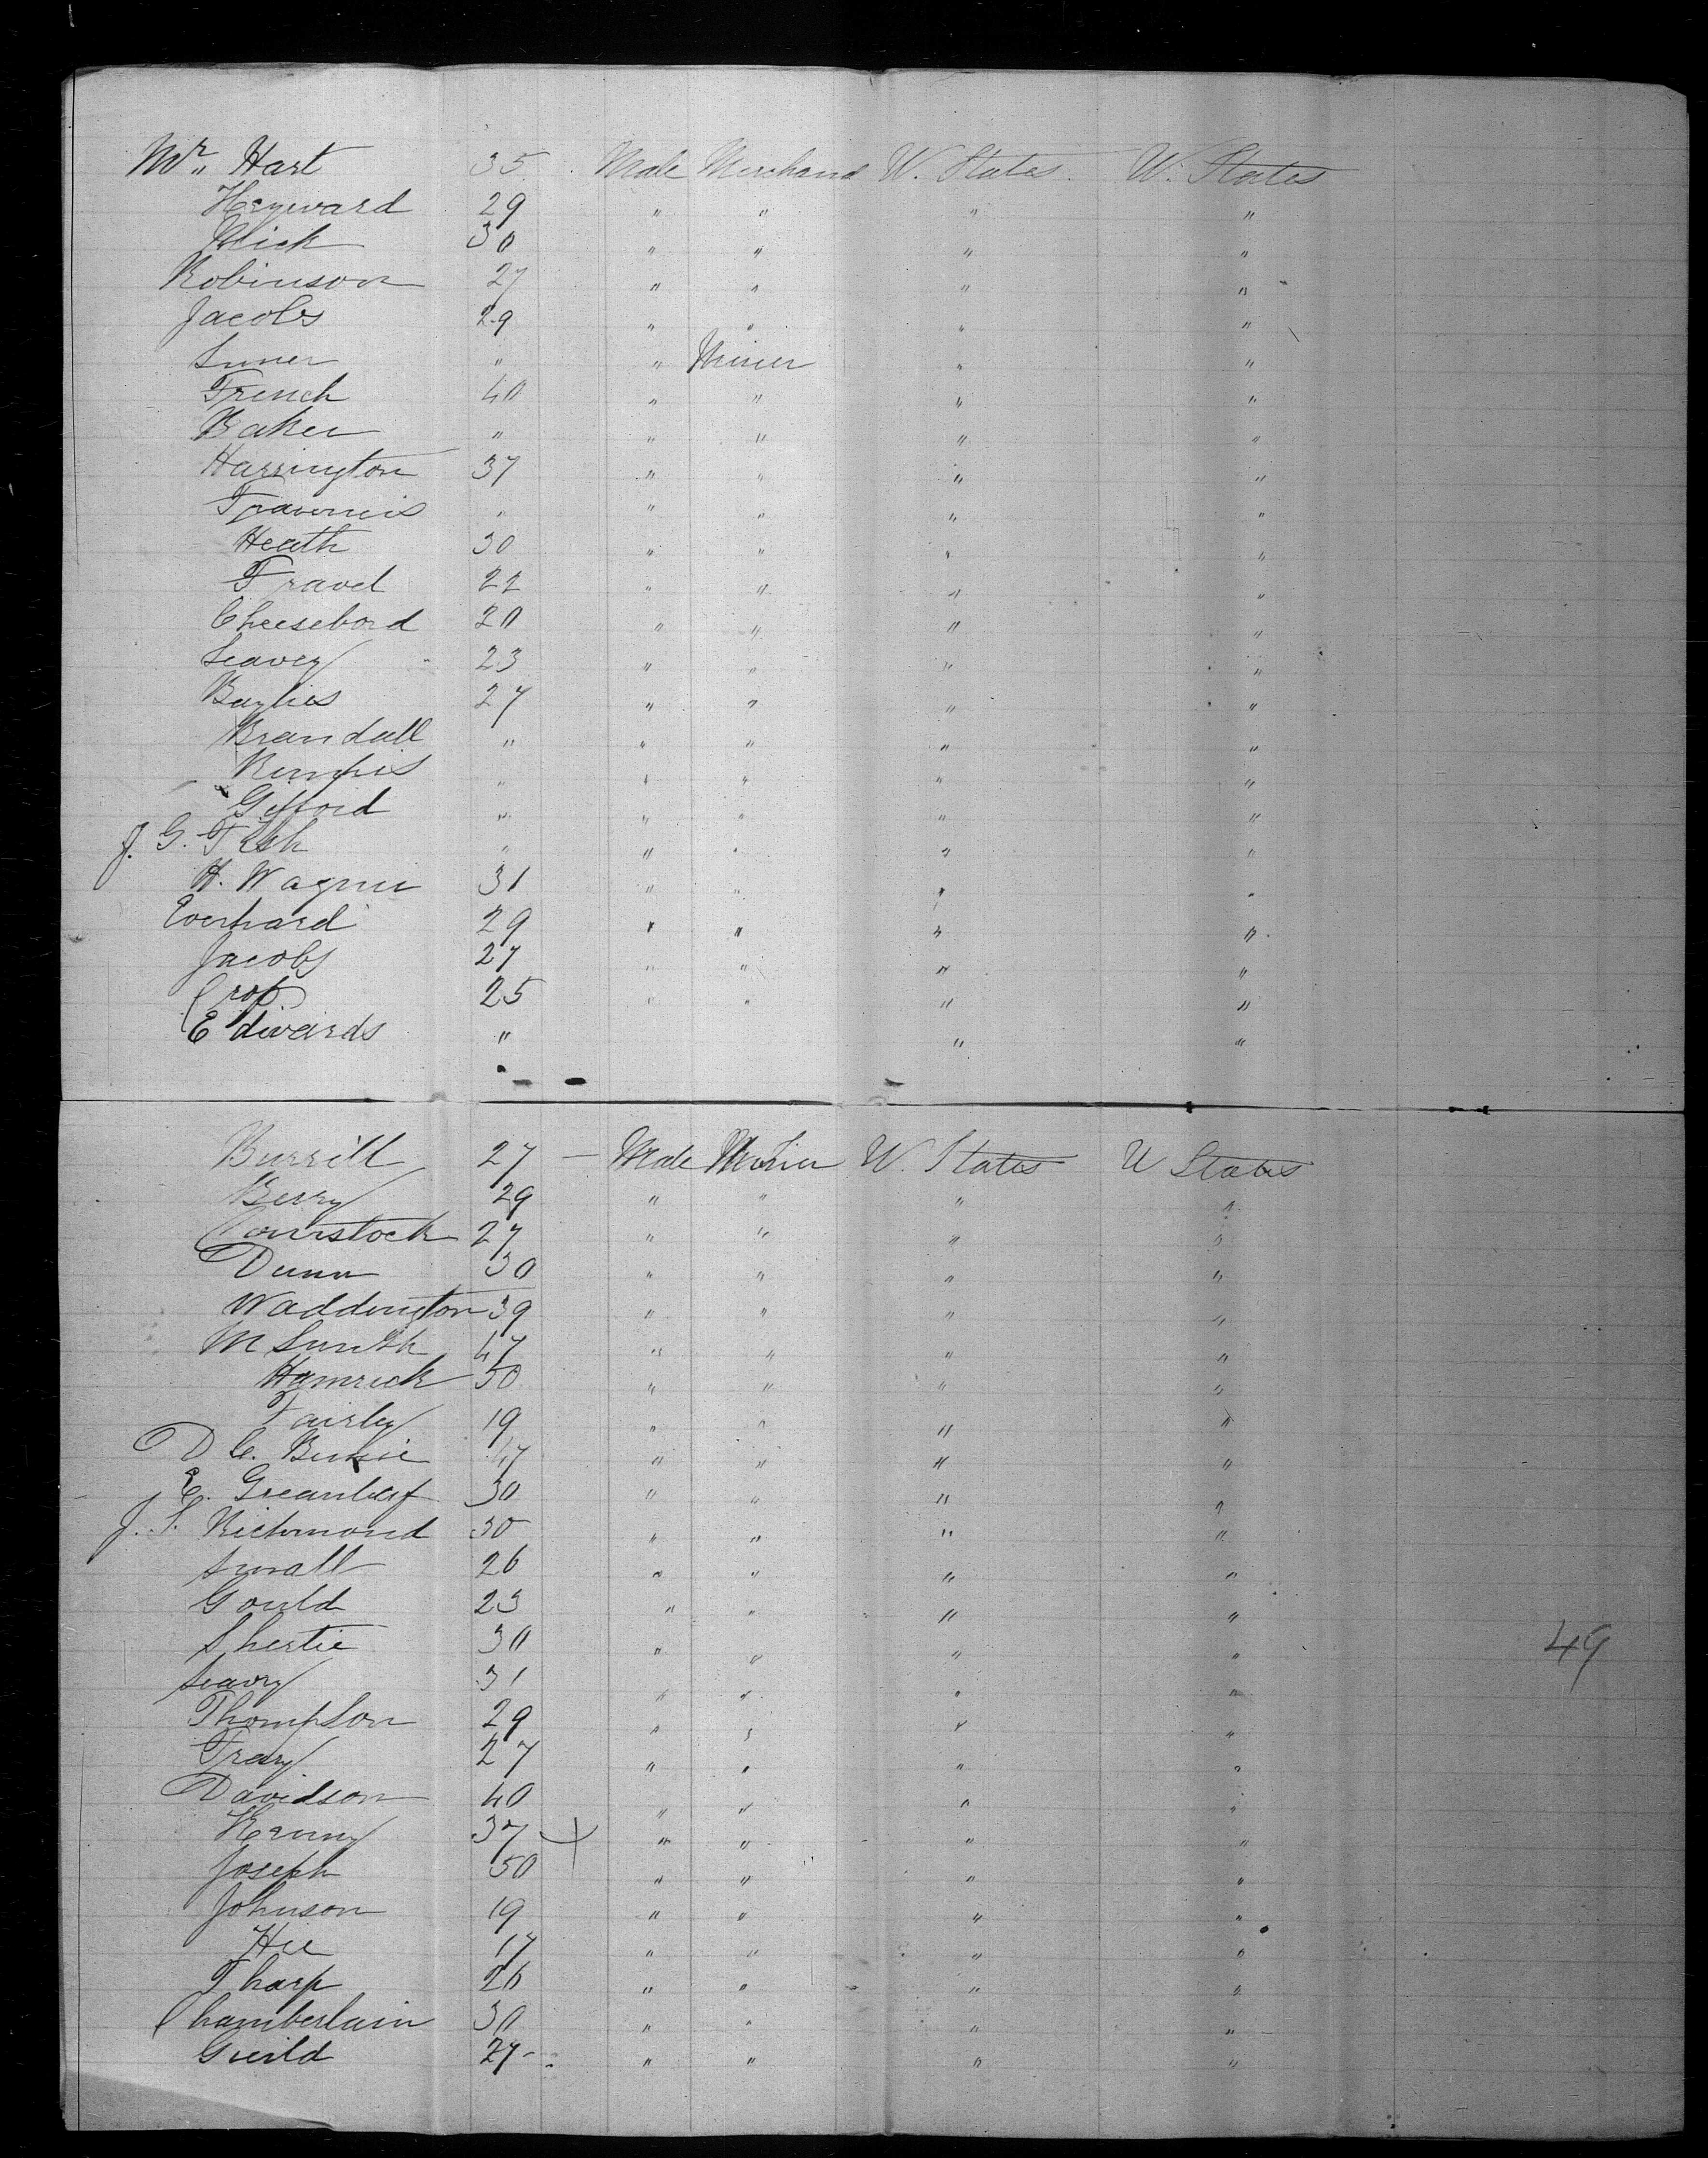 Mr. Hart 35 Male Merchand U. States U. States
Heyward 29 " " " "
Click 30 " " " "
Robinson 27 " " " "
Jacobs 29 " " " "
" " Miner " "
French 40 " " " "
Baker " " " " "
Harrington 37 " " " "
" " " " "
Heath 30 " " " "
Fravel 22 " " " "
Cheesebord 20 " " " "
Seavey 23 " " " "
Baylies 27 " " " "
Brandall " " " " "
" " " " "
Gifford " " " " "
J. G. Fish " " " " "
H. Wagner 31 " " " "
Everhard 29 " " " "
Jacobs 27 " " " "
Crop 25 " " " "
Edwards " " "
Burrill 27 — Male Miner U. States U States
Berry 29 " " " "
Comstock 27 " " " "
Dunn 30 " " " "
Waddington 39 " " " "
M Smith 47 " " " "
Hamrick 50 " " " "
Fairley 19 " " " "
D C. 47 " " " "
E. Greanleaf 30 " " " "
J. S. Richmond 30 " " " "
Small 26 " " " "
Gould 23 " " " "
Shertie 30 " " " "
49
Seavey 31 " " " "
Thompson 29 " " " "
Tray 27 " " " "
Davidson 40 " " " "
37 " " " "
Joseph 50 " " " "
Johnson 19 " " " "
Hee 17 " " " "
Tharp 26 " " " "
Chamberlain 30 " " " "
Guild 27 " " " "